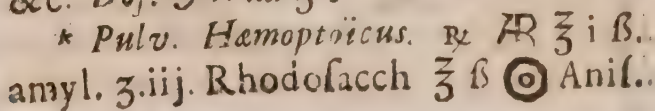 &c. Doſ.
* Pulv. Hæmoptoïcus. ℞ ÆR ℥ i ß.
amyl. ʒ.iij. Rhodoſacch ℥ ß ⊙ Aniſ.